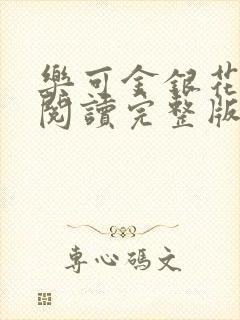 樂可金銀花
閱讀完整版
專心碼文